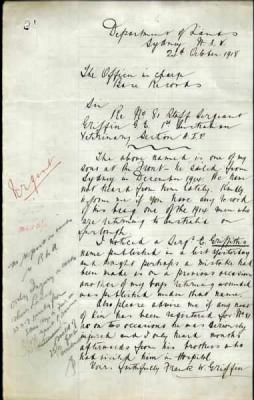 Department of Lands
Sydney N.S.W.
24th October 1918
The Officer in charge
Base Records
Sir
Re No 8. Staff Sergeant
Griffin G E 1st Australian
Veterinary Section A.I.F.
The above named is one of my
sons at the Front. He sailed from
Sydney in December 1914. We have
not heard from him lately. Kindly
inform me if you have any word
of his being one of the 1914 men who
are returning to Australia on
furlough.
I noticed a Sergt C. Griffiths's
name published in a list yesterday
and thought perhaps a mistake had
been made as on a previous occasion
another of my boys returning wounded
was published under that name.
Also please advise me if my next
of kin has been registered for
as on two occasions he was seriously
injured and I only heard months
afterwards from his brothers who
had visited him in Hospital
Yours faithfully Frank W. Griffin
Urgent